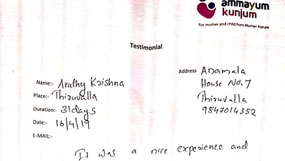 ammayum
kunjum
For mother and child from Mother Nature
Testimonial
Name:- Arathy Krishna
Place:- Thiruvalla
Duration:- 31 days
Date:- 16/4/19
E-MAIL:-
Address Anamala
House No. 7
Thiruvalla
9847014352
It was a nice experience and